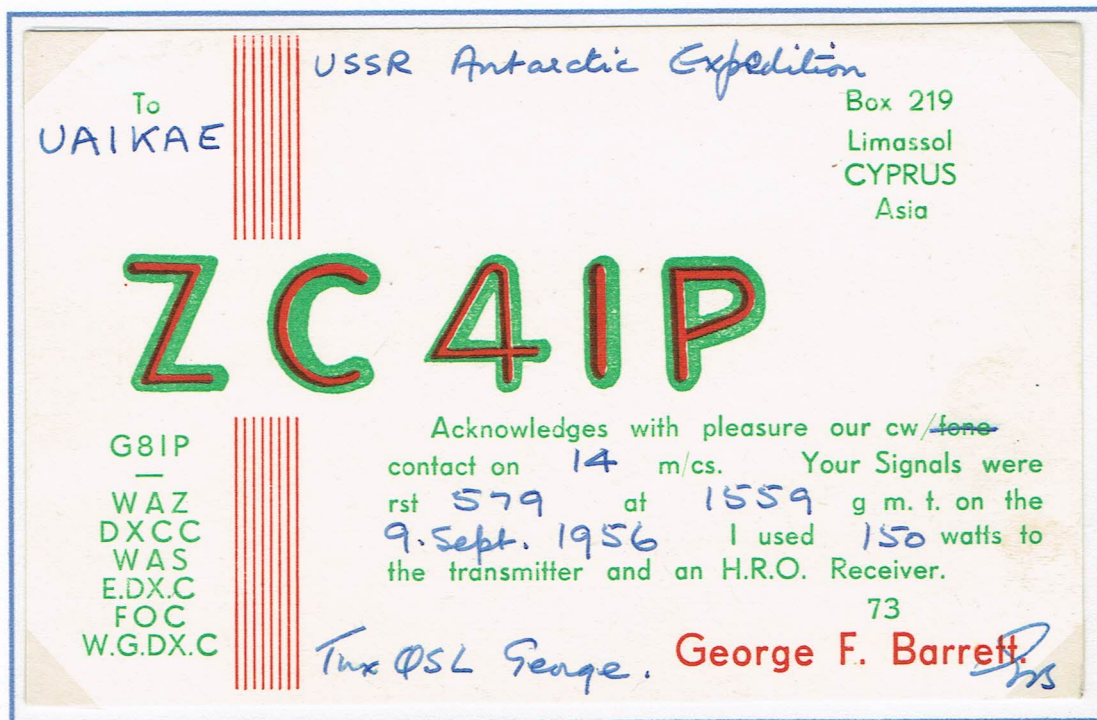 USSR Antarctic Expedition
To
UA1KAE
Box 219
Limassol
CYPRUS
Asia
ZC4IP
G8IP
—
WAZ
DXCC
WAS
E.DX.C
FOC
W.G.DX.C
Acknowledges with pleasure our cw/fone
contact on 14 m/cs. Your Signals were
rst 579 at 1559 g m. t. on the
9. Sept. 1956 I used 150 watts to
the transmitter and an H.R.O. Receiver.
73
Tnx QSL George.
George F. Barrett.